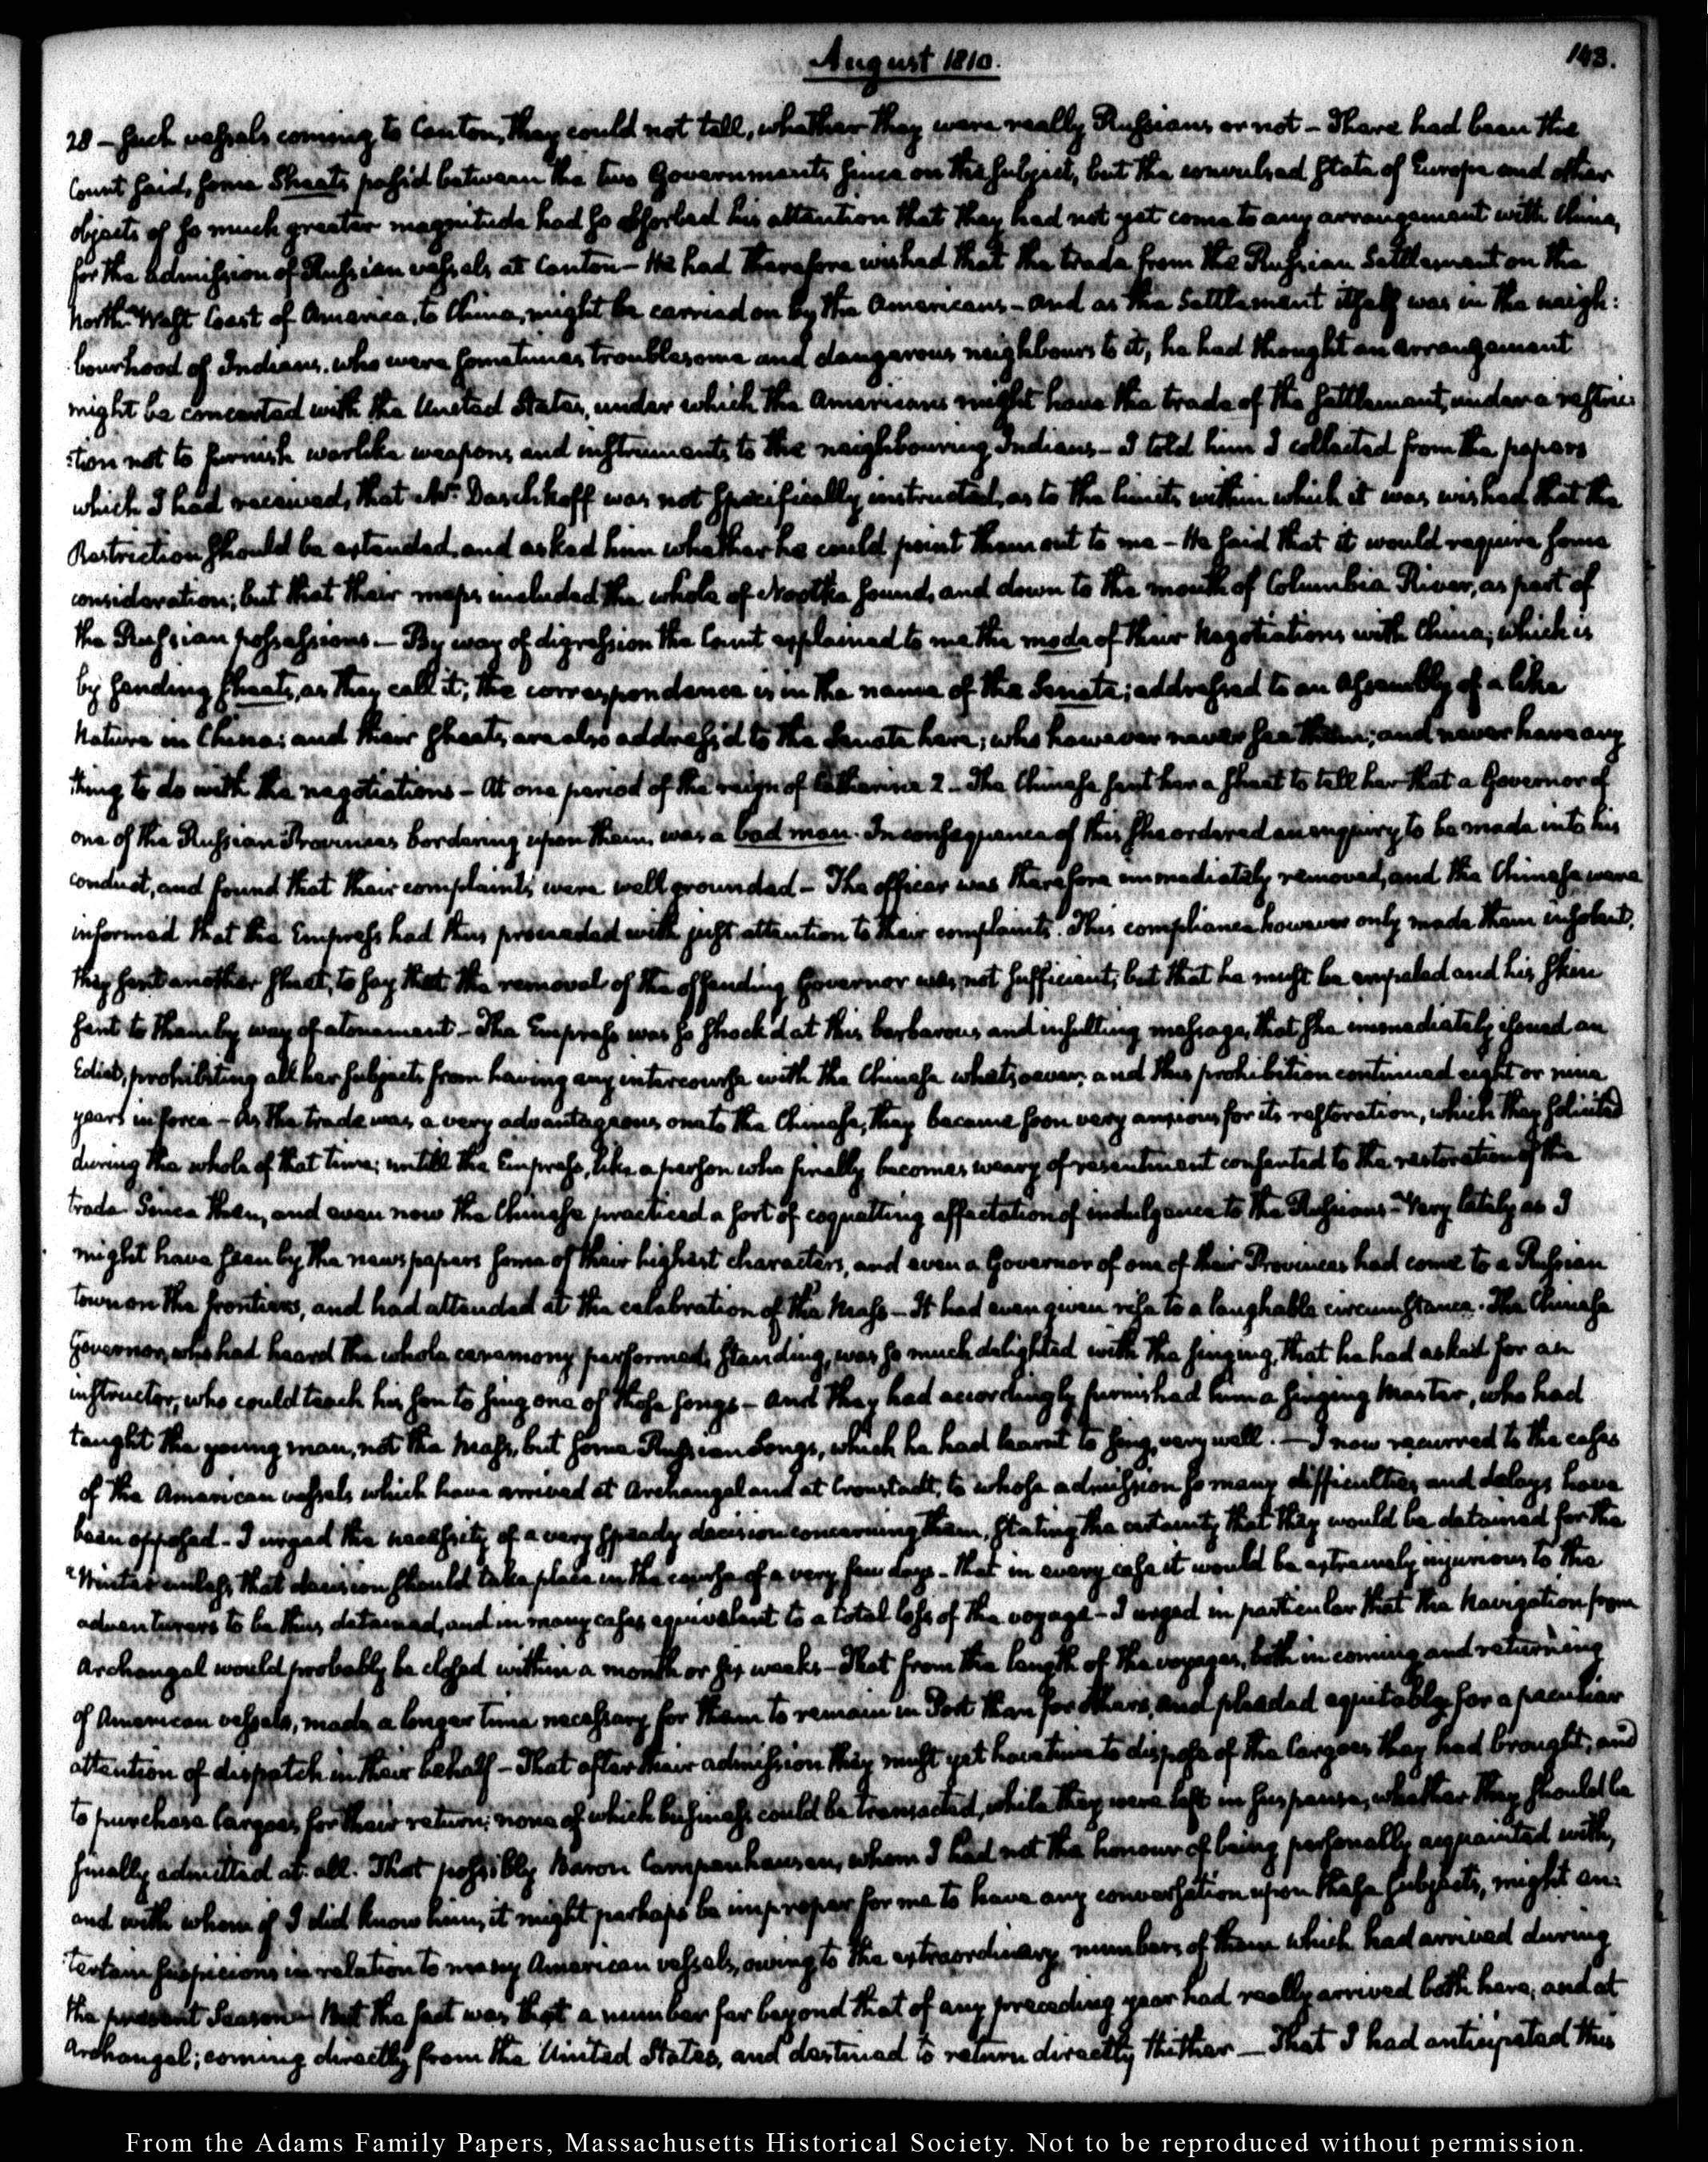 August 1810.
143.
28 – Such vessels coming to Canton, they could not tell, whether they were really Russians or not – There had been the
Count said, some Sheets pass'd between the two Governments since on the subject, but the convulsed State of Europe and other
objects of so much greater magnitude had so absorbed his attention that they had not yet come to any arrangement with China,
for the admission of Russian vessels at Canton – He had therefore wished that the trade from the Russian Settlement on the
North-West Coast of America, to China, might be carried on by the Americans – and as the Settlement itself was in the neigh:
bourhood of Indians, who were sometimes troublesome and dangerous neighbours to it, he had thought an arrangement
might be concerted with the United States, under which the Americans might have the trade of the settlement, under a restric:
:tion not to furnish warlike weapons and instruments to the neighbouring Indians – I told him I collected from the papers
which I had received, that Mr. Daschkoff was not specifically instructed, as to the limits within which it was wished that the
Restriction should be extended, and asked him whether he could point them out to me – He said that it would require some
consideration; but that their maps included the whole of Nootka Sound, and down to the mouth of Columbia River, as part of
the Russian possessions. – By way of digression the Count explained to me the mode of their Negotiations with China; which is
by sending sheets, as they call it; the correspondence is in the name of the Senate; addressed to an Assembly of a like
Nature in China; and their sheets are also address'd to the Senate here; who however never see them; and never have any
thing to do with the negotiations – At one period of the reign of Catherine 2 – The Chinese sent her a sheet to tell her that a Governor of
one of the Russian Provinces bordering upon them, was a bad man. In consequence of this she ordered an enquiry to be made into his
conduct, and found that their complaints were well grounded – The officer was therefore immediately removed, and the Chinese were
informed that the Empress had thus proceeded with just attention to their complaints. This compliance however only made them insolent;
they sent another sheet, to say that the removal of the offending Governor was not sufficient, but that he must be empaled and his skin
sent to them by way of atonement – The Empress was so shock'd at this barbarous and insulting message, that she immediately issued an
Edict, prohibiting all her subjects from having any intercourse with the Chinese whatsoever; and this prohibition continued eight or nine
years in force – As the trade was a very advantageous one to the Chinese, they became soon very anxious for its restoration, which they solicited
during the whole of that time; untill the Empress, like a person who finally becomes weary of resentment consented to the restoration of the
trade. Since then, and even now the Chinese practiced a sort of coquetting affectation of indulgence to the Russians – Very lately as I
might have seen by the newspapers some of their highest characters, and even a Governor of one of their Provinces had come to a Russian
town on the frontiers, and had attended at the celebration of the Mass – It had even given rise to a laughable circumstance. The Chinese
Governor, who had heard the whole ceremony performed, standing, was so much delighted with the singing, that he had asked for an
instructor, who could teach his son to sing one of those songs – And they had accordingly furnished him a singing Master, who had
taught the young man, not the Mass, but some Russian Songs, which he had learnt to sing very well. – I now recurred to the cases
of the American vessels which have arrived at Archangel and at Cronstadt, to whose admission so many difficulties and delays have
been opposed – I urged the necessity of a very speedy decision concerning them, stating the certainty that they would be detained for the
Winter unless that decision should take place in the course of a very few days – that in every case it would be extremely injurious to the
adventurers to be thus detained, and in many cases equivalent to a total loss of the voyage – I urged in particular that the Navigation from
Archangel would probably be closed within a month or six weeks – That from the length of the voyages, both in coming and returning
of American vessels, made a longer time necessary for them to remain in Port than for others, and pleaded equitably for a peculiar
attention of dispatch in their behalf – That after their admission they must yet have time to dispose of the Cargoes they had brought, and
to purchase Cargoes for their return; none of which business could be transacted, while they were left in suspense, whether they should be
finally admitted at all. That possibly Baron Campenhausen, whom I had not the honour of being personally acquainted with,
and with whom if I did know him, it might perhaps be improper for me to have any conversation upon these subjects, might en:
tertain suspicions in relation to many American vessels, owing to the extraordinary numbers of them which had arrived during
the present Season – But the fact was that a number far beyond that of any preceding year had really arrived both here, and at
Archangel; coming directly from the United States, and destined to return directly thither – That I had anticipated this
From the Adams Family Papers, Massachusetts Historical Society. Not to be reproduced without permission.